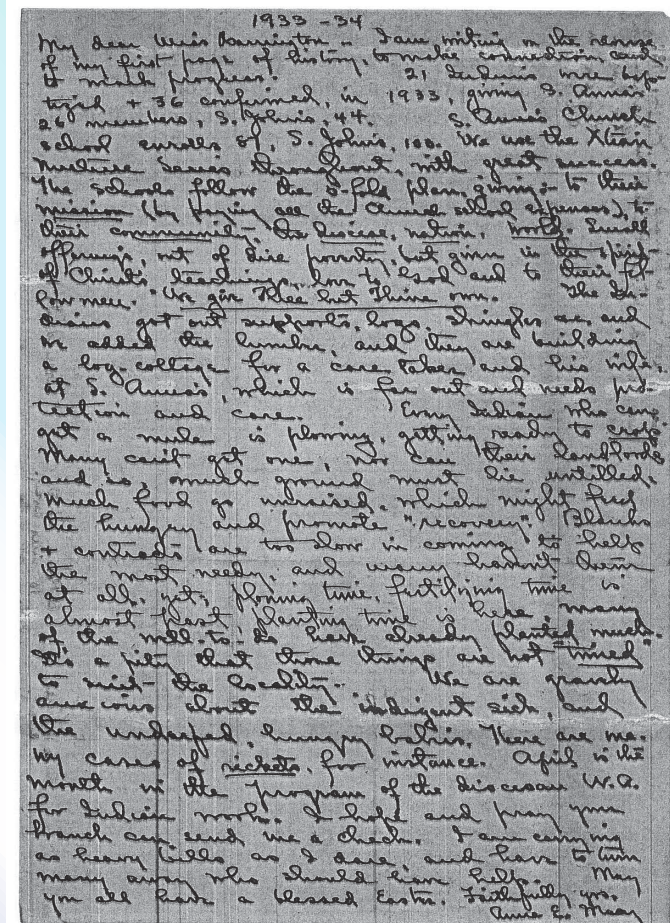 1933-34
My dear Miss Barrington - I am writing on the reverse
of my first page of history, to make connection, and
to mark progress. 21 Indians were bap-
tized + 36 confirmed, in 1933, giving S. Anna's
26 members, S. John's, 44. S. Anna's Church
school enrolls 87, S. John's, 100. We use the Xtian
Nurture Series throughout, with great success.
The schools follow the 5-fold plan, giving to their
mission (by paying all the Church school expenses), to
their community, the diocese, nation, world. Small
offerings, out of dire poverty, but given in the spirit
of Christ's teaching, love to God and to their fel-
low men. "We give Thee but Thine own. The In-
dians got out supports, logs, shingles etc, and
we added the lumber, and they are building
a log-cottage for a care taker and his wife,
at S. Anna's, which is far out and needs pro-
tection and care. Every Indian who can
get a mule is plowing, getting ready to crop.
Many can't get one, nor can their landlords
and so, much ground must lie untilled,
much food go unraised, which might feed
the hungry and promote "recovery". Blanks
+ contracts are too slow in coming to help
the most needy, and many haven't them
at all, yet, plowing time, fertilizing time is
almost past, planting time is here, many
of the well-to-do have already planted much.
It's a pity that those things are not "timed"
to suit the locality. We are gravely
anxious about the indigent sick, and
the underfed, hungry babies. There are ma-
ny cases of rickets, for instance. April is the
month in the program of the diocesan W.A.
for Indian work. I hope and pray your
branch can send me a check. I am carrying
as heavy bills as I dare, and have to turn
many away who should have help. May
you all have a blessed Easter. Faithfully, yrs.
Anna E. Macy